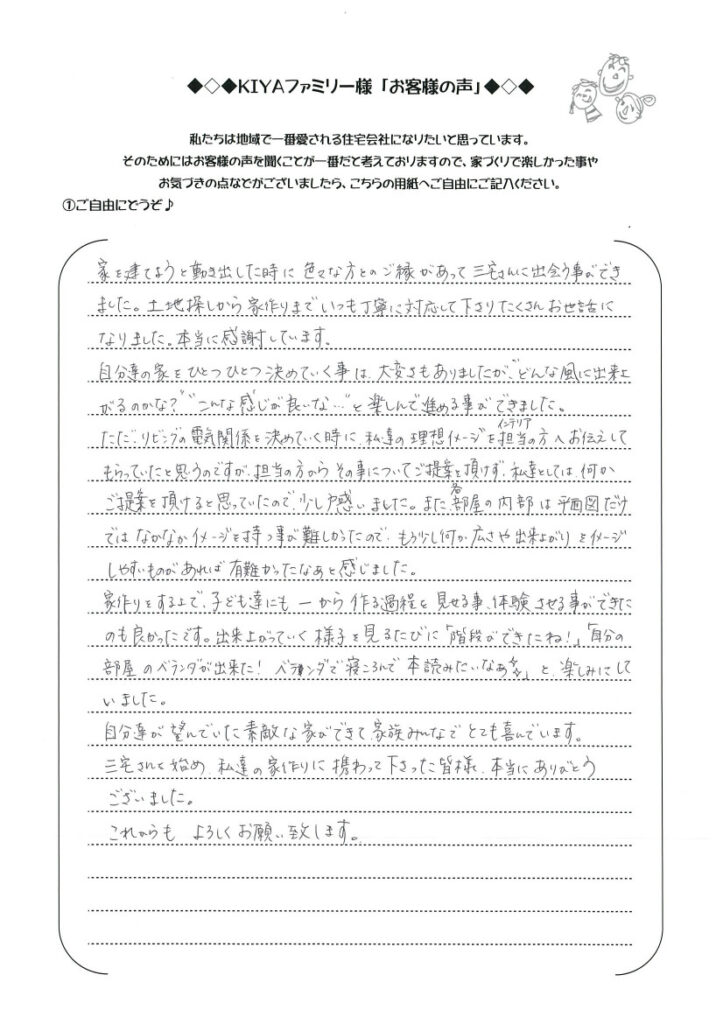 ◆◇◆KIYAファミリー様「お客様の声」◆◇◆
私たちは地域で一番愛される住宅会社になりたいと思っています。
そのためにはお客様の声を聞くことが一番だと考えておりますので、家づくりで楽しかった事や
お気づきの点などがございましたら、こちらの用紙へご自由にご記入ください。
①ご自由にどうぞ♪
家を建てようと動き出した時に 色々な方とのご縁があって 三宅さんに出会う事ができ
ました。土地探しから家作りまで いつも丁寧に対応して下さり たくさんお世話に
なりました。本当に感謝しています。
自分達の家を ひとつひとつ 決めていく事は、大変さもありましたが、"どんな風に出来上
がるのかな?" "こんな感じが良いな…" と 楽しんで進める事ができました。
ただ、リビングの電気関係を決めていく時に、私達の理想イメージをインテリア担当の方へお伝えして
もらっていたと思うのですが、担当の方から その事についてご提案を頂けず、私達としては、何か
ご提案を頂けると思っていたので、少し戸惑いました。また、各部屋の内部は平面図だけ
では なかなかイメージを持つ事が難しかったので、もう少し何か広さや出来上がりをイメージ
しやすいものがあれば有難かったなあと感じました。
家作りをする上で、子ども達にも 一から作る過程を見せる事、体験させる事ができた
のも良かったです。出来上がっていく様子を見るたびに「階段ができたね!」「自分の
部屋のベランダが出来た! ベランダで寝ころんで本読みたいなあ」と、楽しみにして
いました。
自分達が望んでいた素敵な家ができて家族みんなでとても喜んでいます。
三宅さんを始め、私達の家作りに携わって下さった皆様、本当にありがとう
ございました。
これからも よろしくお願い致します。